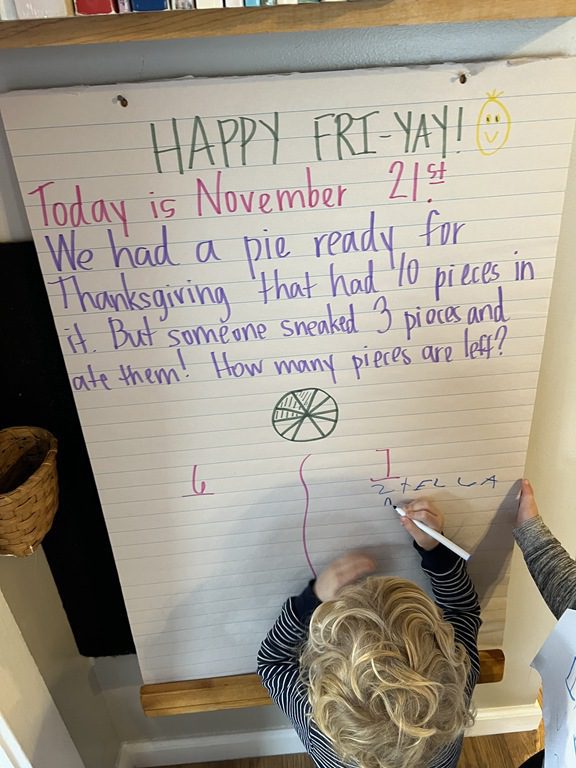 HAPPY FRI-YAY!
Today is November 21st.
We had a pie ready for
Thanksgiving that had 10 pieces in
it. But someone sneaked 3 pieces and
ate them! How many pieces are left?
6 7